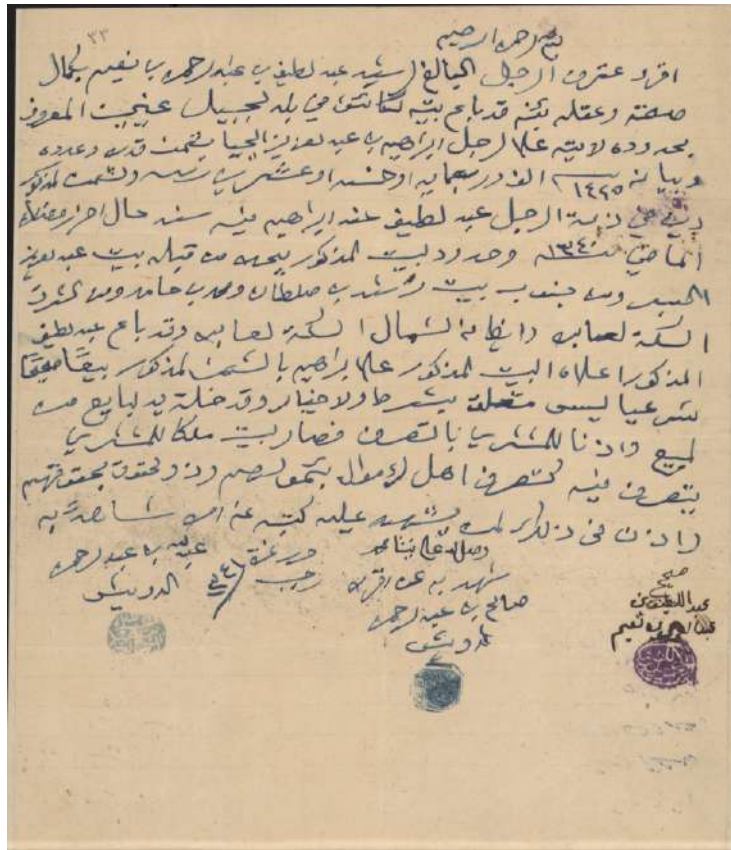 ٣٣
بسم الله الرحمن الرحيم
اقر واعترف الرجل البالغ الرشيد عبد لطيف بن عبد الرحمن بن نعيم بكمال
صحته وعقله بئنه قد باع بيته الكائن في بلد الجبيل المعروف
بحدوده لابيته على الرجل ابراهيم بن عبد لعزيز بثمن قدره وعدده
وبيانه ١٤٢٥ الف واربعمايه او خمسه او عشرين والثمن المذكور
دين في ذمة الرجل عبد لطيف عند ابراهيم من سند حال
الماضي سنة ١٣٤٠ وحدود لبيت المذكور يحده من قبله بيت عبد لعزيز
ومن جنوب بيت راشد بن سلطان ومحمد بن حامد ومن الشرق
السكة لعابره وايظا من الشمال السكة لعابره وقد باع عبد لطيف
المذكور اعلاه البيت المذكور على ابراهيم بالثمن لمذكور بيعًا
شرعيا ليس معلق بشرط ولا خيار وقد خلت يد لبايع من
لمبيع واذنا للمشتري بالتصرف فصار لبيت ملكا للمشتري
يتصرف فيه كتصرف اهل لأموال بئموالهم وذو لحقوق بحقوقهم
واذن في ذلك لمن يشهد عليه كتبه عن امره شاهد به
وصلى الله على نبينا محمد حرر غرة رجب سنة ٤١ عبد لله بن عبد لرحمن الدويش
شهد به عن اقراره
صالح بن عبد لرحمن
لدويش
صحيح
عبد اللطيف بن
عبد الرحمن بن نعيم